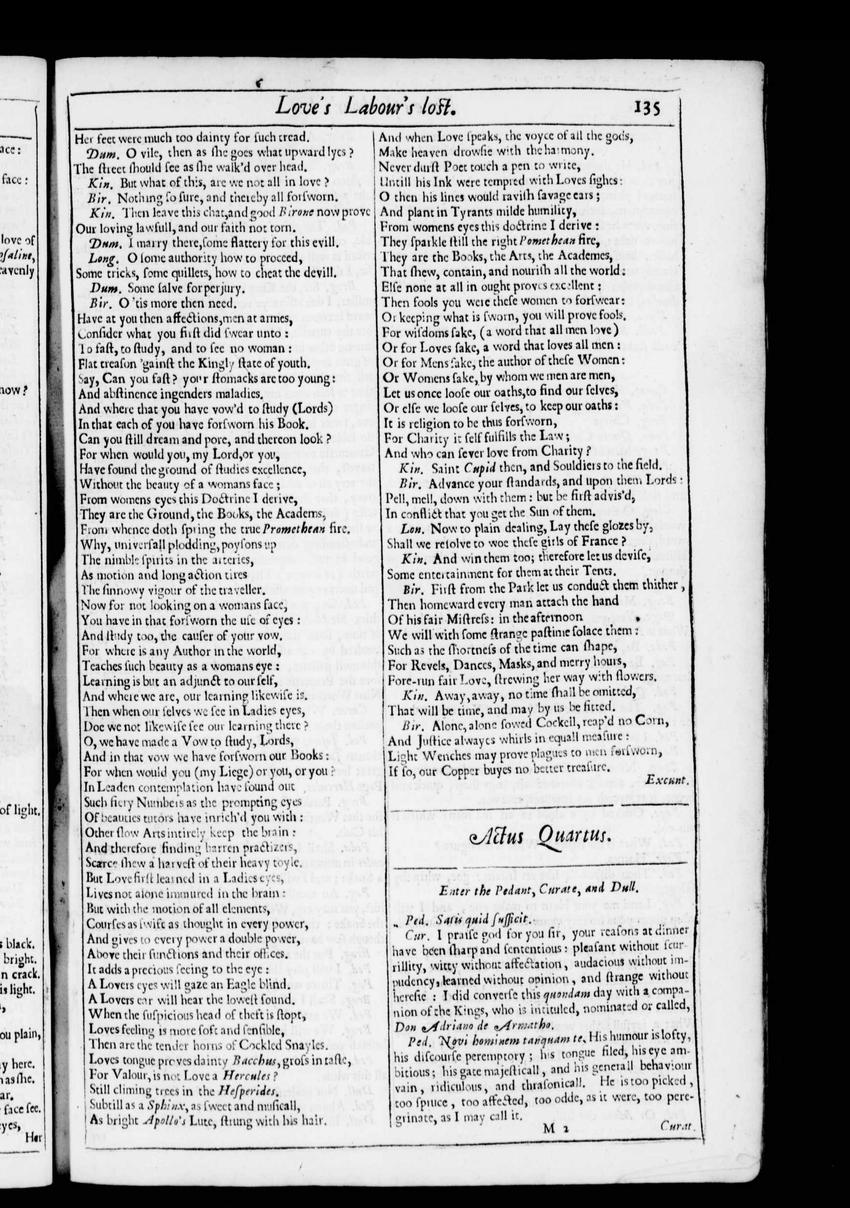 Love's Labour's lost. 135
Her feet were much too dainty for such tread.
Dum. O vile, then as she goes what upward lyes?
The street should see as she walk'd over head.
Kin. But what of this, are we not all in love?
Bir. Nothing so sure, and thereby all forsworn.
Kin. Then leave this chat,and good Birone now prove
Our loving lawfull, and our faith not torn.
Dum. I marry there,some flattery for this evill.
Long. O some authority how to proceed,
Some tricks, some quillets, how to cheat the devill.
Dum. Some salve for perjury.
Bir. O 'tis more then need.
Have at you then affections,men at armes,
Consider what you first did swear unto:
To fast, to study, and to see no woman:
Flat treason 'gainst the Kingly state of youth.
Say, Can you fast? your stomacks are too young:
And abstinence ingenders maladies.
And where that you have vow'd to study (Lords)
In that each of you have forsworn his Book.
Can you still dream and pore, and thereon look?
For when would you, my Lord,or you,
Have found the ground of studies excellence,
Without the beauty of a womans face;
From womens eyes this Doctrine I derive,
They are the Ground, the Books, the Academs,
From whence doth spring the true Promethean fire.
Why, universall plodding, poysons up
The nimble spirits in the arteries,
As motion and long action tires
The sinnowy vigour of the traveller.
Now for not looking on a womans face,
You have in that forsworn the use of eyes:
And study too, the causer of your vow.
For where is any Author in the world,
Teaches such beauty as a womans eye:
Learning is but an adjunct to our self,
And where we are, our learning likewise is.
Then when our selves we see in Ladies eyes,
Doe we not likewise see our learning there?
O, we have made a Vow to study, Lords,
And in that vow we have forsworn our Books:
For when would you (my Liege) or you, or you?
In Leaden contemplation have found out
Such fiery Numbers as the prompting eyes
Of beauties tutors have inrich'd you with:
Other slow Arts intirely keep the brain:
And therefore finding barren practizers,
Scarce shew a harvest of their heavy toyle.
But Love first learned in a Ladies eyes,
Lives not alone immured in the brain:
But with the motion of all elements,
Courses as swift as thought in every power,
And gives to every power a double power,
Above their functions and their offices.
It adds a precious seeing to the eye:
A Lovers eyes will gaze an Eagle blind.
A Lovers ear will hear the lowest sound.
When the suspicious head of theft is stopt,
Loves feeling is more soft and sensible,
Then are the tender horns of Cockled Snayles.
Loves tongue proves dainty Bacchus, gross in taste,
For Valour, is not Love a Hercules?
Still climing trees in the Hesperides.
Subtill as a Sphinx, as sweet and musicall,
As bright Apollo's Lute, strung with his hair.
And when Love speaks, the voyce of all the gods,
Make heaven drowsie with the harmony.
Never durst Poet touch a pen to write,
Untill his Ink were tempred with Loves sighes:
O then his lines would ravish savage ears;
And plant in Tyrants milde humility,
From womens eyes this doctrine I derive:
They sparkle still the right Pomethean fire,
They are the Books, the Arts, the Academes,
That shew, contain, and nourish all the world:
Else none at all in ought proves excellent:
Then fools you were these women to forswear:
Or keeping what is sworn, you will prove fools.
For wisdoms sake, (a word that all men love)
Or for Loves sake, a word that loves all men:
Or for Mens sake, the author of these Women:
Or Womens sake, by whom we men are men,
Let us once loose our oaths,to find our selves,
Or else we loose our selves, to keep our oaths:
It is religion to be thus forsworn,
For Charity it self fulfills the Law;
And who can sever love from Charity?
Kin. Saint Cupid then, and Souldiers to the field.
Bir. Advance your standards, and upon them Lords:
Pell, mell, down with them: but be first advis'd,
In conflict that you get the Sun of them.
Lon. Now to plain dealing, Lay these glozes by,
Shall we resolve to woe these girls of France?
Kin. And win them too; therefore let us devise,
Some entertainment for them at their Tents.
Bir. First from the Park let us conduct them thither,
Then homeward every man attach the hand
Of his fair Mistress: in the afternoon
We will with some strange pastime solace them:
Such as the shortness of the time can shape,
For Revels, Dances, Masks, and merry hours,
Fore-run fair Love, strewing her way with flowers.
Kin. Away, away, no time shall be omitted,
That will be time, and may by us be fitted.
Bir. Alone, alone sowed Cockell, reap'd no Corn,
And Justice alwayes whirls in equall measure:
Light Wenches may prove plagues to men forsworn,
If so, our Copper buyes no better treasure.
Exeunt.
Actus Quartus.
Enter the Pedant, Curate, and Dull.
Ped. Satis quid sufficit.
Cur. I praise god for you sir, your reasons at dinner
have been sharp and sententious: pleasant without scur-
rillity, witty without affectation, audacious without im-
pudency, learned without opinion, and strange without
heresie: I did converse this quondam day with a compa-
nion of the Kings, who is intituled, nominated or called,
Don Adriano de Armatho.
Ped. Novi hominem tanquam te. His humour is lofty,
his discourse peremptory; his tongue filed, his eye am-
bitious; his gate majesticall, and his generall behaviour
vain, ridiculous, and thrasonicall. He is too picked,
too spruce, too affected, too odde, as it were, too pere-
grinate, as I may call it.
M 2 Curat.
ace:
face:
love of
osaline,
eavenly
now?
of light.
s black.
bright.
n crack.
is light.
ou plain,
y here.
n as she.
ar.
face see.
eyes,
Her